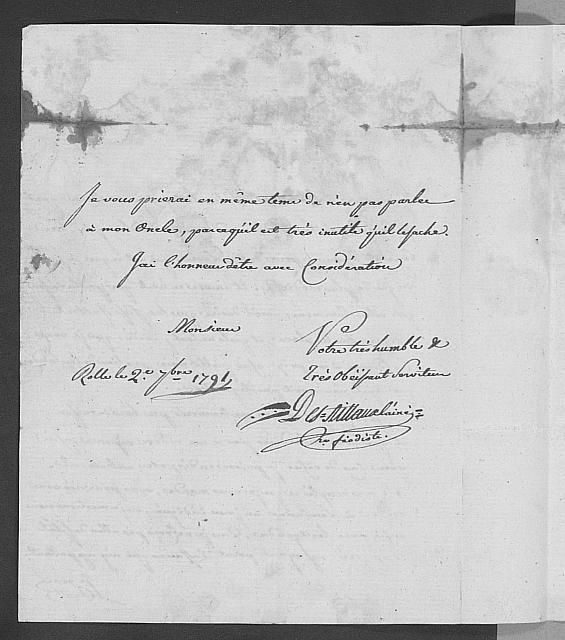 Je vous prierai en même tems de n'en pas parler
à mon Oncle, parcequ'il est très inutile qu'il le sache.
J'ai l'honneur d'être avec Considération
Monsieur
Votre très humble &
Très Obéissant Serviteur
Rolle le 2.e 7bre 1791,
féodiste.